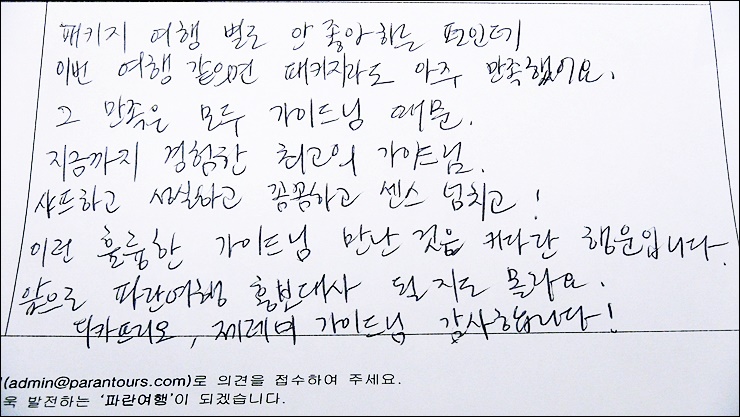 패키지 여행 별로 안 좋아하는 편인데
이번 여행 같으면 패키지라도 아주 만족했어요.
그 만족은 모두 가이드님 때문.
지금까지 경험한 최고의 가이드님.
샤프하고 성실하고 꼼꼼하고 센스 넘치고!
이런 훌륭한 가이드님 만난 것은 커다란 행운입니다.
앞으로 파란여행 홍보대사 될지도 몰라요.
디카프리오, 제레미 가이드님 감사합니다!
(admin@parantours.com)로 의견을 접수하여 주세요.
욱 발전하는 '파란여행'이 되겠습니다.